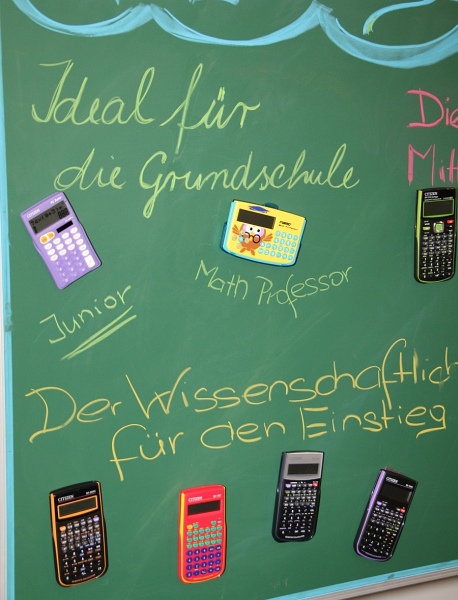 Ideal für
die Grundschule
Die
Mit
CITIZEN
Math Professor
Junior
Der Wissenschaftlich
für den Einstieg
CITIZEN
CITIZEN
CITIZEN
CITIZEN